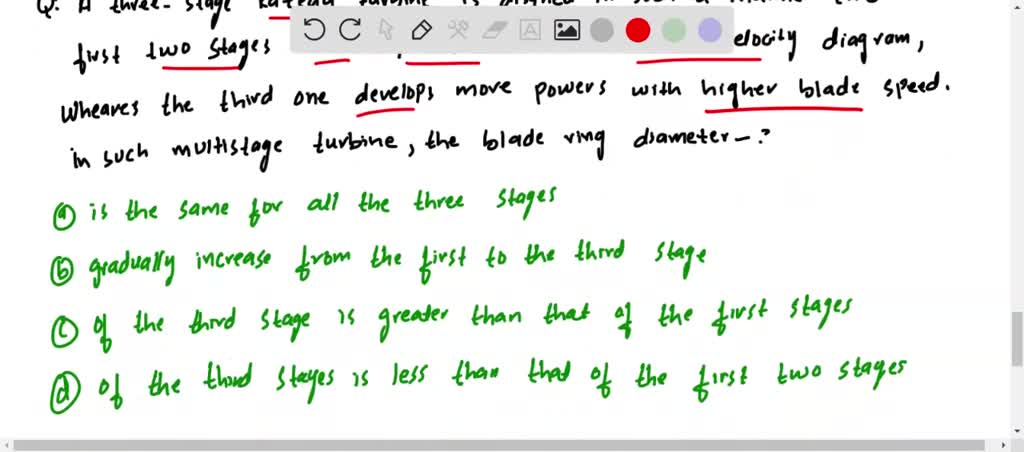 Q. A three-stage
first two stages elocity diagram,
wheares the third one develops more powers with higher blade speed.
in such multistage turbine, the blade ring diameter - ?
ⓐ is the same for all the three stages
ⓑ gradually increase from the first to the third stage
ⓒ of the third stage is greater than that of the first stages
ⓓ of the third stages is less than that of the first two stages